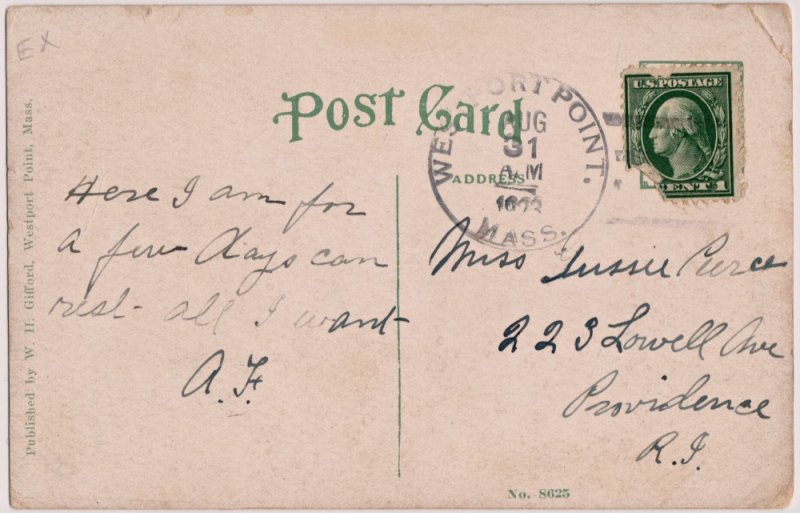 EX
Published by W. H. Gifford, Westport Point, Mass.
POST CARD
WESTPORT POINT.
AUG
31
A.M
MASS.
U.S. POSTAGE
CENTS 1
ADDRESS
Here I am for
a few days can
rest - all I want
A.F.
Miss Sussie Pierce
223 Lowell Ave
Providence
R.I.
No. 8625